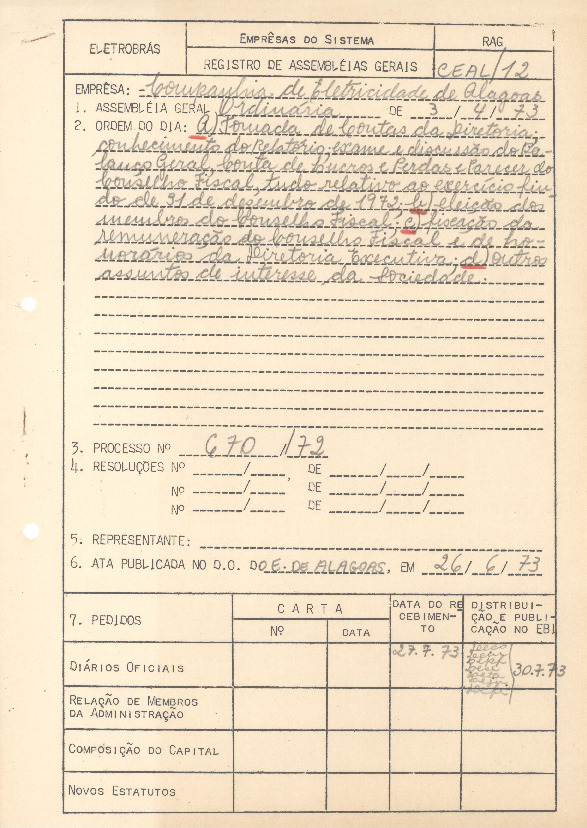 ELETROBRÁS
EMPRÊSAS DO SISTEMA
RAG
REGISTRO DE ASSEMBLÉIAS GERAIS
CEAL/12
EMPRÊSA: Companhia de Eletricidade de Alagoas
1. ASSEMBLÉIA GERAL Ordinária DE 3 / 4 / 73
2. ORDEM DO DIA: A) Tomada de Contas da Diretoria,
conhecimento do Relatório, exame e discussão do Ba-
lanço Geral, Conta de Lucros e Perdas e Parecer do
Conselho Fiscal, tudo relativo ao exercício fin-
do de 31 de dezembro de 1972; b) eleição dos
membros do Conselho Fiscal; c) fixação da
remuneração do Conselho Fiscal e de ho-
norários da Diretoria Executiva; d) Outros
assuntos de interesse da Sociedade.
3. PROCESSO Nº 670/72
4. RESOLUÇÕES Nº / , DE / /
Nº / DE / /
Nº / DE / /
5. REPRESENTANTE:
6. ATA PUBLICADA NO D.O. DO E. DE ALAGOAS, EM 26/ 6 / 73
7. PEDIDOS
CARTA
Nº
DATA
DATA DO RE
CEBIMEN-
TO
DISTRIBUI-
ÇÃO E PUBLI-
CAÇÃO NO EBI
DIÁRIOS OFICIAIS
27.7.73
30.7.73
RELAÇÃO DE MEMBROS
DA ADMINISTRAÇÃO
COMPOSIÇÃO DO CAPITAL
NOVOS ESTATUTOS